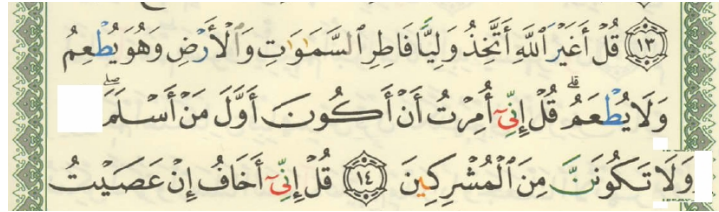 ﴿١٣﴾ قُلْ أَغَيْرَ ٱللَّهِ أَتَّخِذُ وَلِيًّا فَاطِرِ ٱلسَّمَـٰوَٰتِ وَٱلْأَرْضِ وَهُوَ يُطْعِمُ
وَلَا يُطْعَمُ ۗ قُلْ إِنِّىٓ أُمِرْتُ أَنْ أَكُونَ أَوَّلَ مَنْ أَسْلَمَ ۖ
وَلَا تَكُونَنَّ مِنَ ٱلْمُشْرِكِينَ ﴿١٤﴾ قُلْ إِنِّىٓ أَخَافُ إِنْ عَصَيْتُ